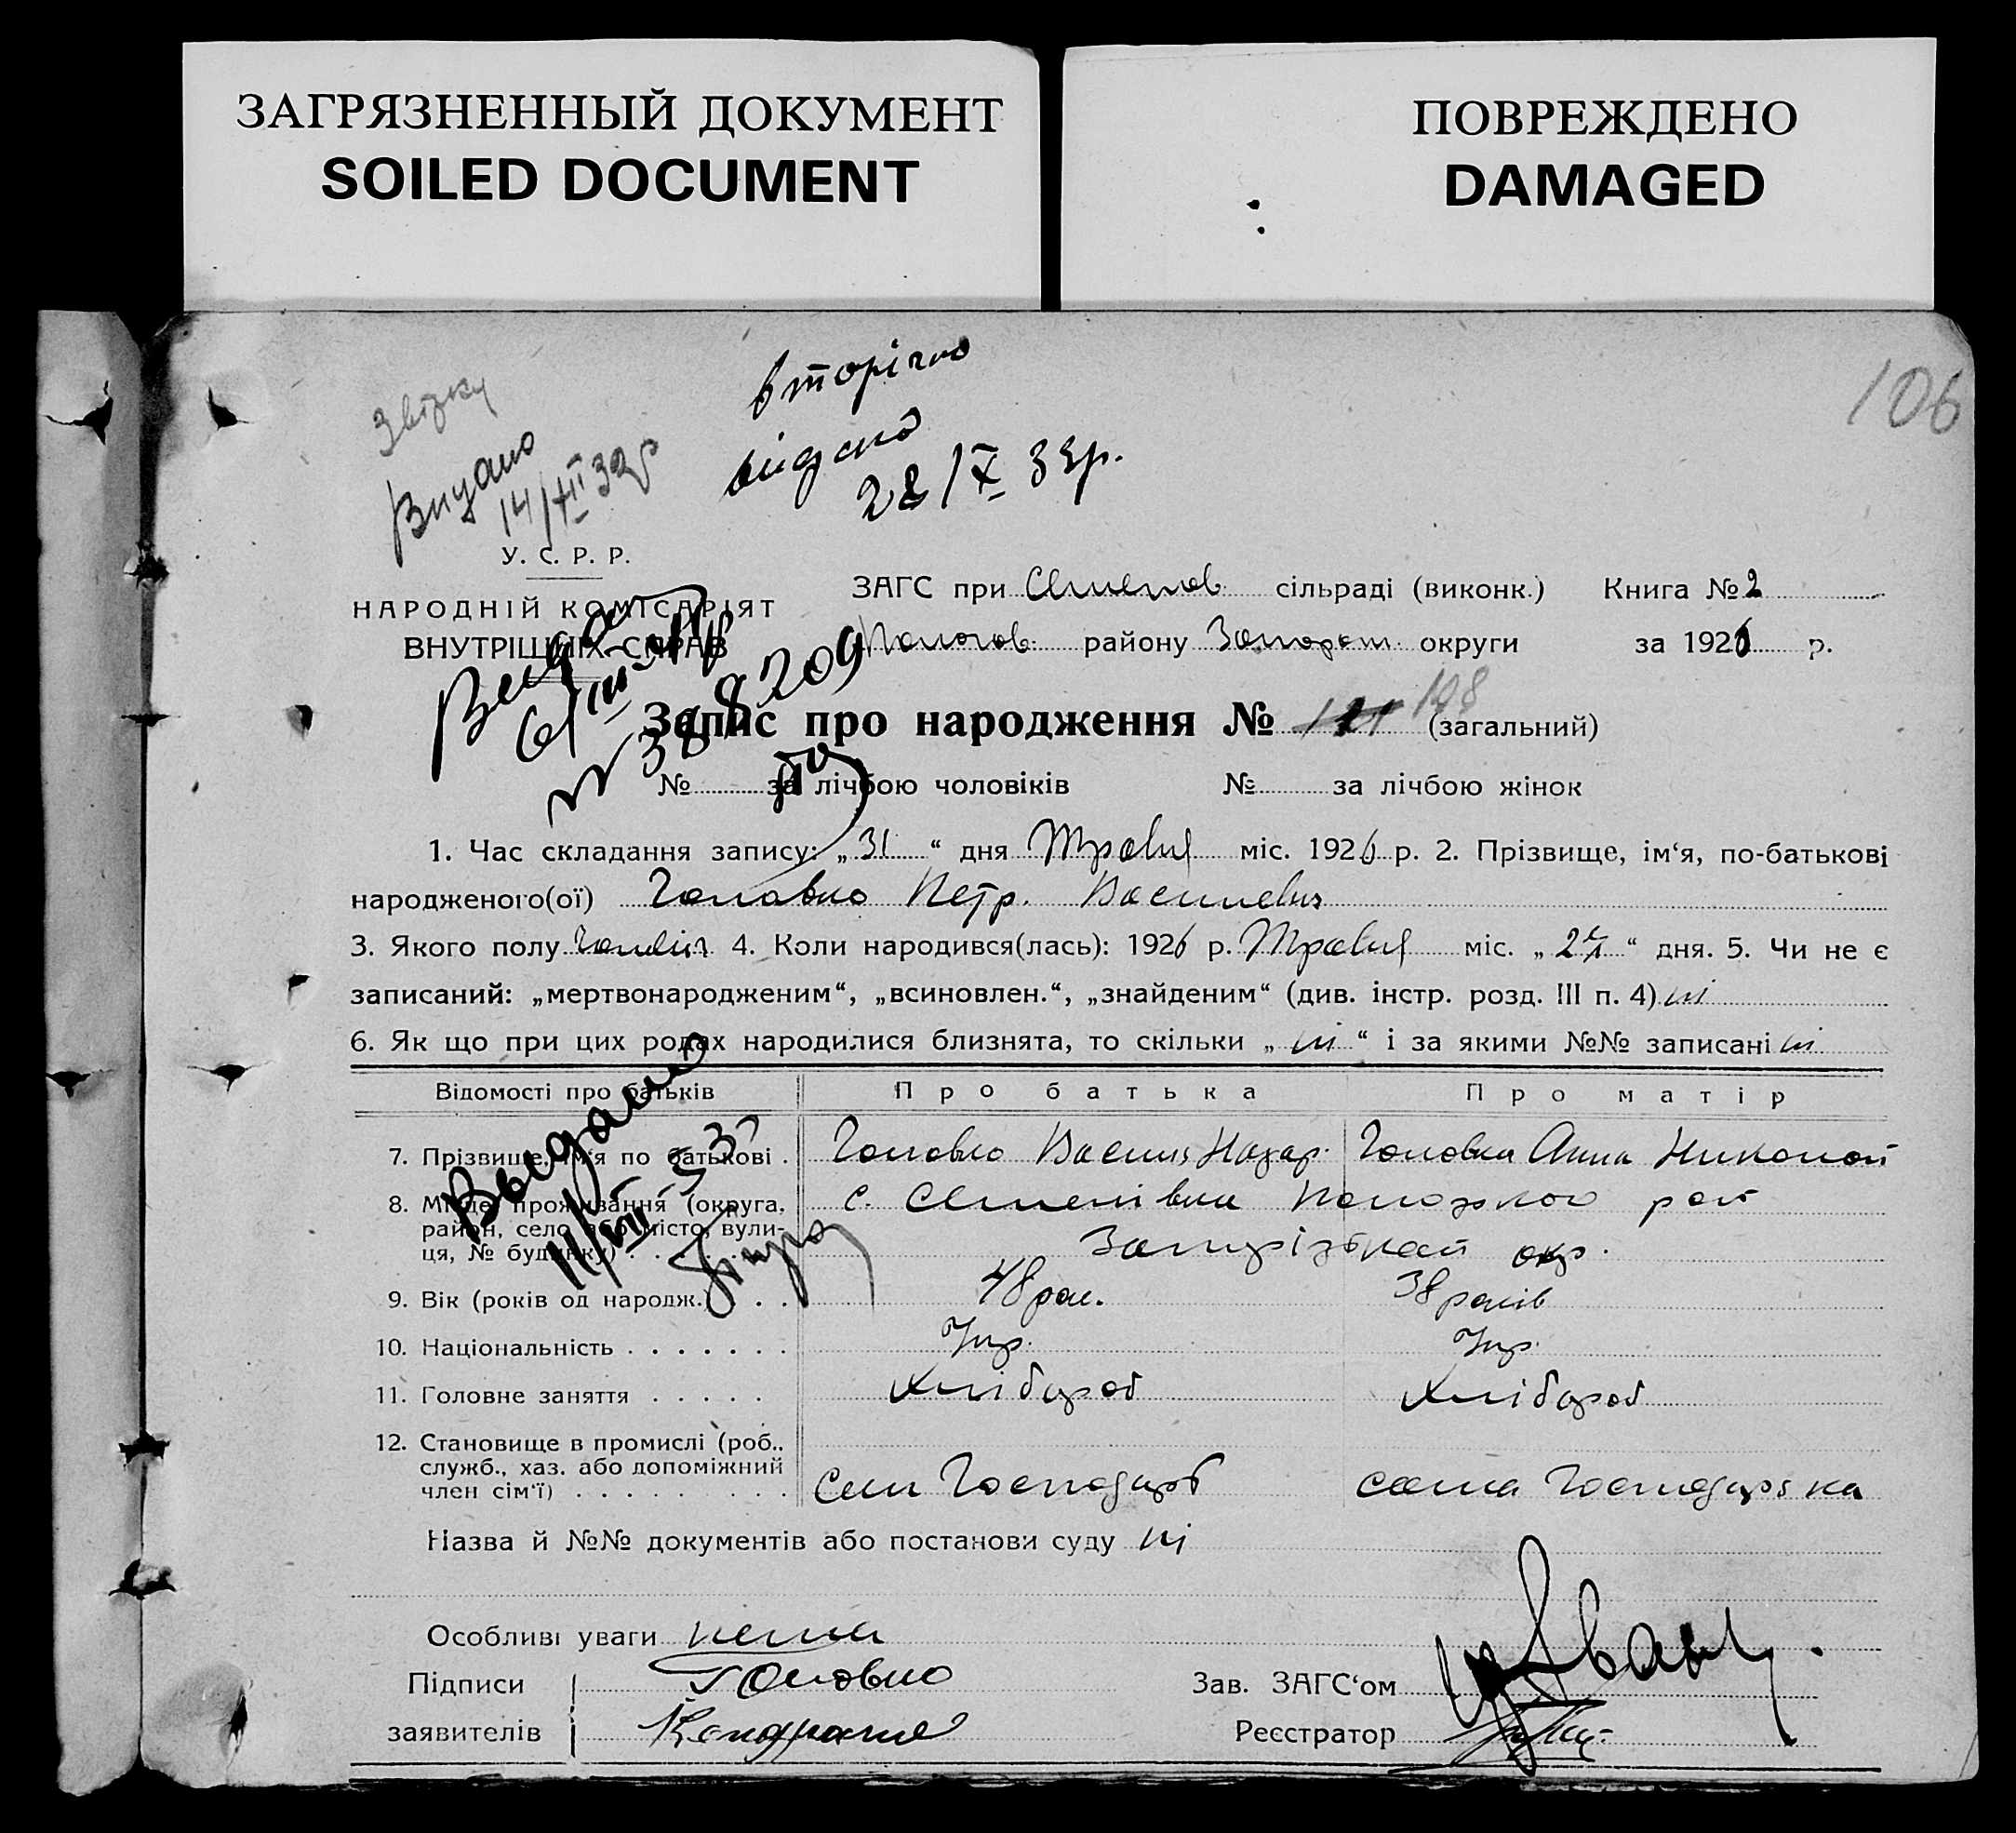 ЗАГРЯЗНЕННЫЙ ДОКУМЕНТ
SOILED DOCUMENT
ПОВРЕЖДЕНО
DAMAGED
106
вторічно
видано
28/X 33р.
Видано
14/III 32р
У. С. Р. Р.
НАРОДНІЙ КОМІСАРІЯТ
ВНУТРІШНІХ СПРАВ
ЗАГС при Семенов. сільраді (виконк.) Книга № 2
Пологов. району Запорож. округи за 1926 р.
Запис про народження № 121 198 (загальний)
№ за лічбою чоловіків № за лічбою жінок
1. Час складання запису: „31“ дня Травня міс. 1926 р. 2. Прізвище, ім‘я, по-батькові
народженого(ої) Головко Петр. Василевич
3. Якого полу 4. Коли народився(лась): 1926 р. Травня міс. „ “ дня. 5. Чи не є
записаний: „мертвонародженим“, „всиновлен.“, „знайденим“ (див. інстр. розд. III п. 4) ні
6. Як що при цих родах народилися близнята, то скільки „ ні “ і за якими №№ записані ні
Відомості про батьків Про батька Про матір
7. Прізвище, ім‘я по батькові . Головко Василь Назар. Головко Анна Николай
8. Місце проживання (округа,
район, село або місто, вули-
ця, № будинку) . . .
с. Семенівка Пологского рай
Запорізькай окр.
9. Вік (років од народж.) . . . 48 рок. 38 років
10. Національність . . . . . . . Укр. Укр.
11. Головне заняття . . . . . Хлібороб Хлібороб
12. Становище в промислі (роб..
служб., хаз. або допоміжний
член сім‘ї) . . . . . . . . .
Сам Господарь сама Господарька
Видано
11/VII 37
Назва й №№ документів або постанови суду ні
Особливі уваги нема
Підписи Головко Зав. ЗАГС‘ом
заявителів Реєстратор